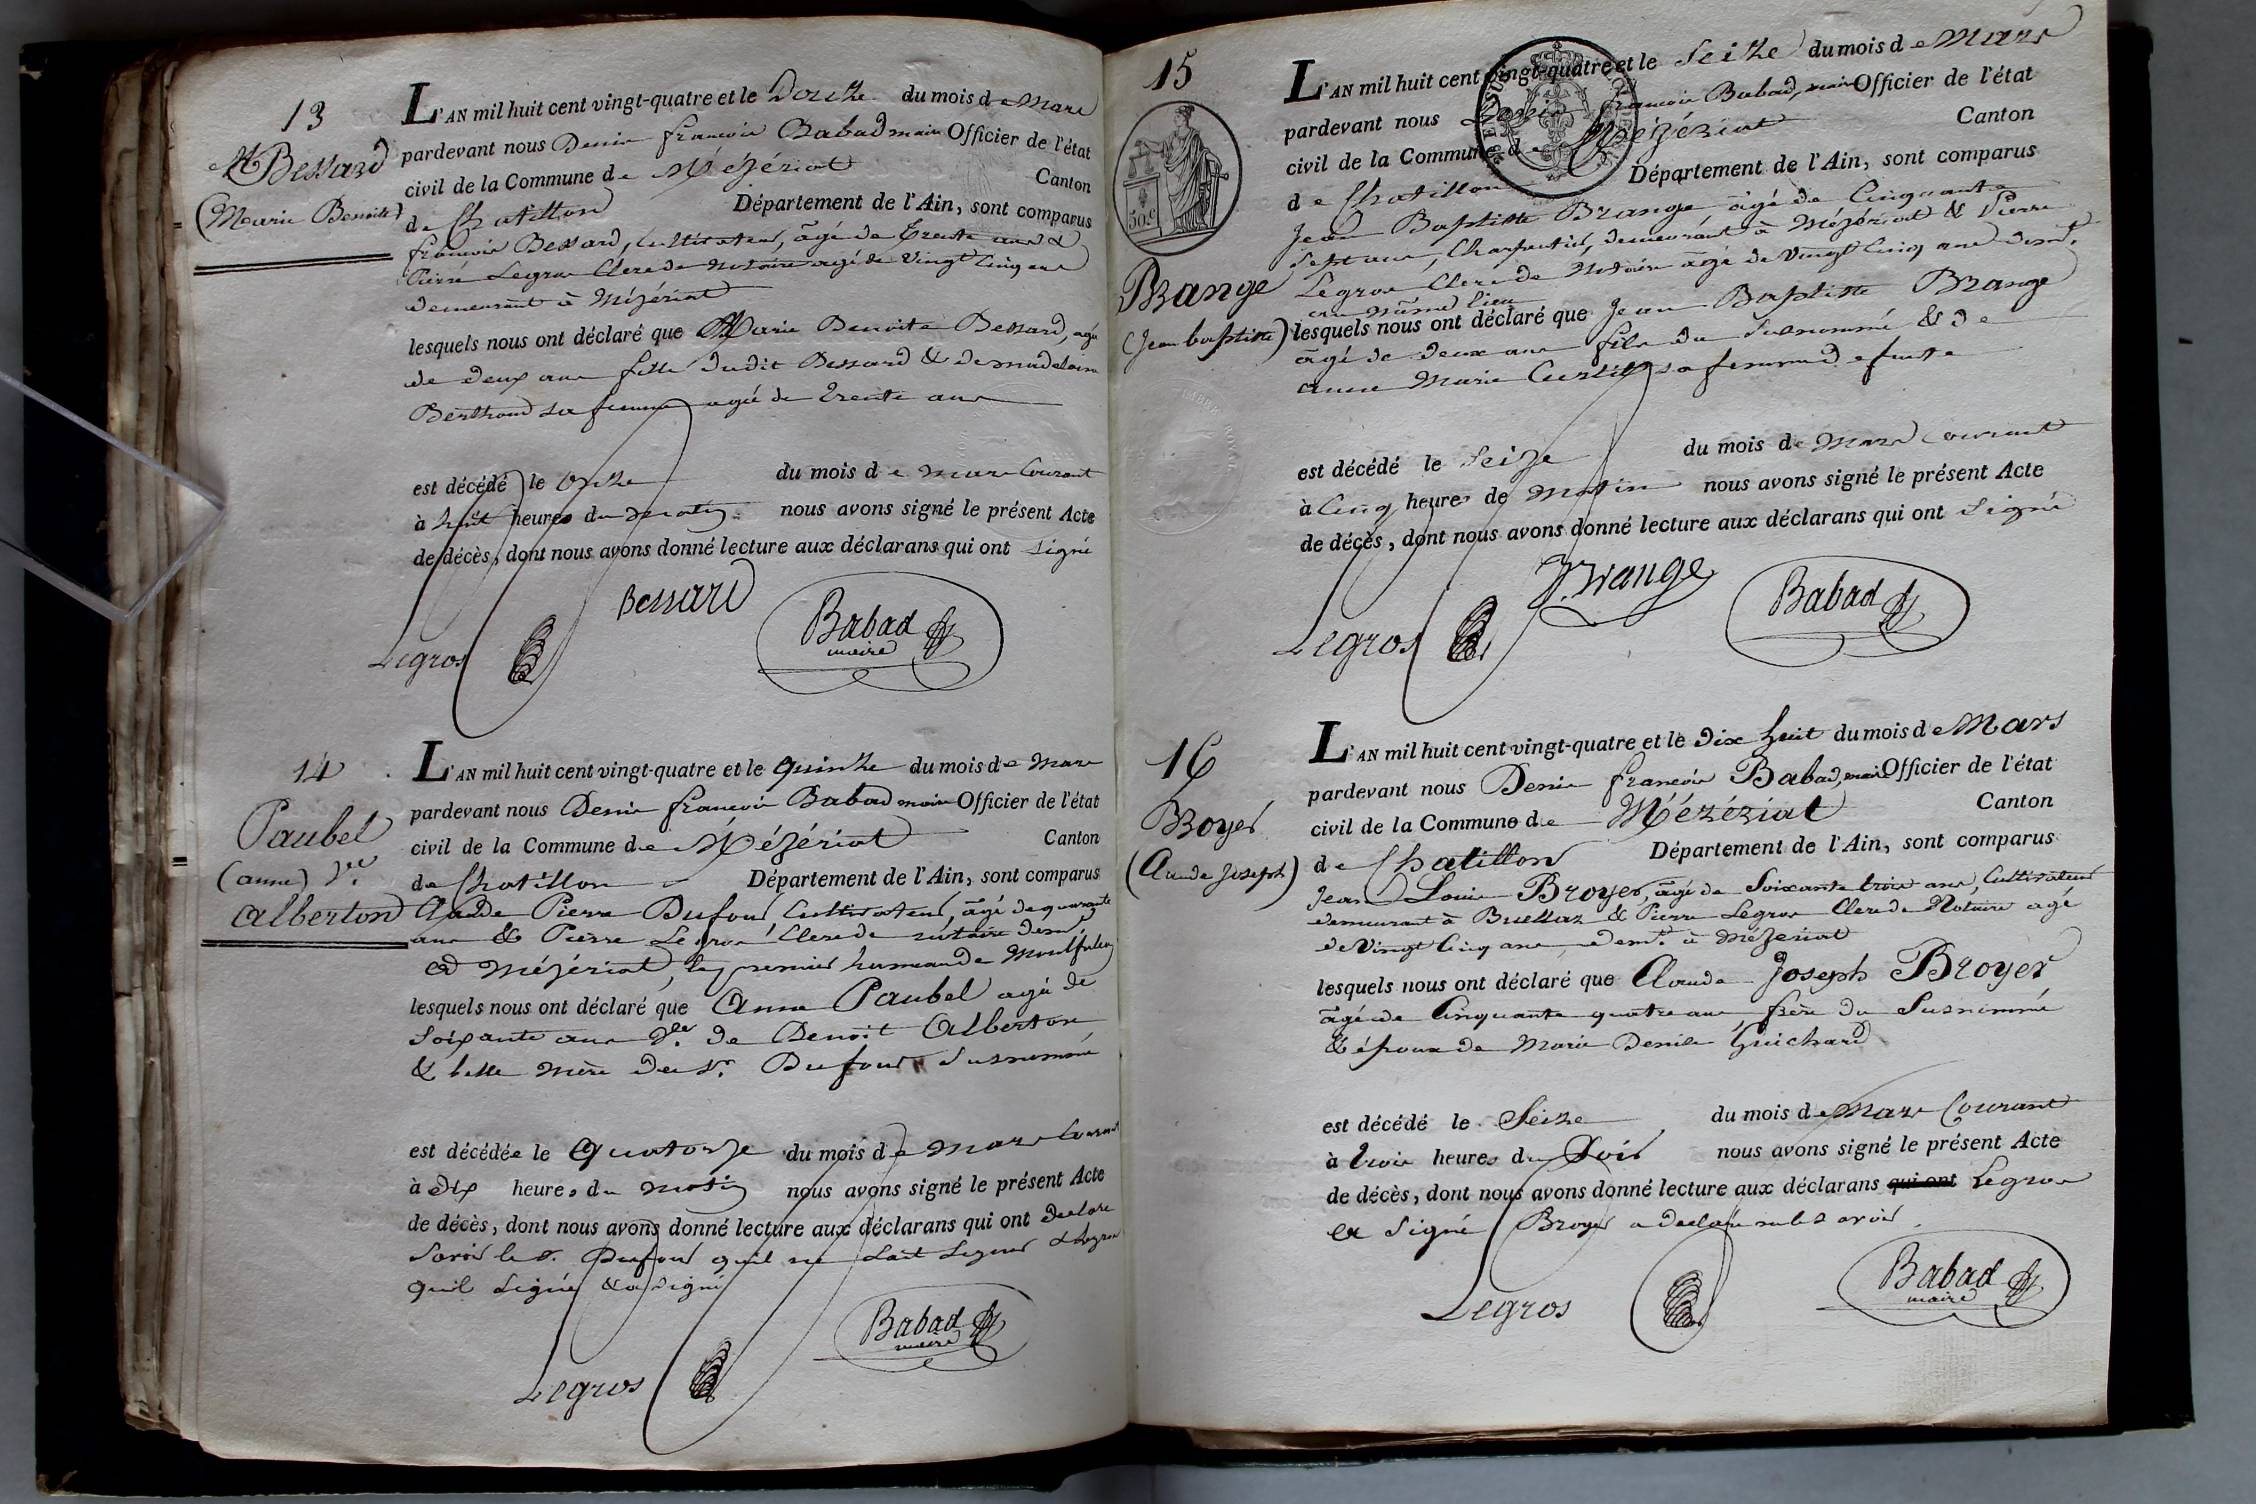 13
Bessard
(Marie Benoite)
L'AN mil huit cent vingt-quatre et le Douze du mois de Mars
pardevant nous Denis françois Babad maire Officier de l'état
civil de la Commune de Mézériat Canton
de Chatillon Département de l'Ain, sont comparus
françois Bessard, Cultivateur, âgé de Trente ans &
Pierre Legros Clerc de Notaire agé de vingt Cinq ans
demeurant à Mézériat
lesquels nous ont déclaré que Marie Benoite Bessard, agée
de deux ans fille dudit Bessard & de madelaine
Berthoud sa femme agée de trente ans
est décédé le Onze du mois de mars Courant
à huit heures du matin nous avons signé le présent Acte
de décès, dont nous avons donné lecture aux déclarans qui ont signé
Bessard
Legros
Babad
maire
14
Paubel
(anne) Ve.
Alberton
L'AN mil huit cent vingt-quatre et le quinze du mois de Mars
pardevant nous Denis françois Babad maire Officier de l'état
civil de la Commune de Mézériat Canton
de Chatillon Département de l'Ain, sont comparus
Claude Pierre Dufour Cultivateur, âgé de quarante
ans & Pierre Legros Clerc de notaire demt.
à Mézériat, le premier hameau de Montfalcon
lesquels nous ont déclaré que Anne Paubel agée de
soixante ans Ve. de Benoit Alberton
& belle mère du Sr. Dufour susnommé
est décédée le Quatorze du mois de Mars Courant
à dix heures du matin nous avons signé le présent Acte
de décès, dont nous avons donné lecture aux déclarans qui ont declaré
savoir le Sr. Dufour qu'il ne sait signer & Legros
qu'il signé & a signé
Legros
Babad
maire
15
50 c
Brange
(Jean baptiste)
L'AN mil huit cent vingt-quatre et le Seize du mois de Mars
pardevant nous Denis françois Babad, maire Officier de l'état
civil de la Commune de Mézériat Canton
de Chatillon Département de l'Ain, sont comparus
Jean Baptiste Brange, âgé de Cinquante
Sept ans, Charpentier, demeurant à Mézériat & Pierre
Legros Clerc de Notaire âgé de Vingt Cinq ans demt.
au même lieu
lesquels nous ont déclaré que Jean Baptiste Brange
âgé de deux ans fils du susnommé & de
anne Marie Curtil sa femme defunte
est décédé le Seize du mois de Mars Courant
à Cinq heures de Matin nous avons signé le présent Acte
de décès, dont nous avons donné lecture aux déclarans qui ont signé
Brange
Legros
Babad
16
Broyer
(Claude Joseph)
L'AN mil huit cent vingt-quatre et le Dix huit du mois de Mars
pardevant nous Denis françois Babad, maire Officier de l'état
civil de la Commune de Mézériat Canton
de Chatillon Département de l'Ain, sont comparus
Jean Louis Broyer, âgé de Soixante trois ans, Cultivateur
demeurant à Buellas & Pierre Legros Clerc de Notaire agé
de Vingt Cinq ans, demt. à Mézériat
lesquels nous ont déclaré que Claude Joseph Broyer
âgé de Cinquante quatre ans, frère du Susnommé
& époux de Marie Denise Guichard
est décédé le Seize du mois de Mars Courant
à trois heures du Soir nous avons signé le présent Acte
de décès, dont nous avons donné lecture aux déclarans qui ont Legros
a signé Broyer a declaré ne le savoir
Legros
Babad
maire